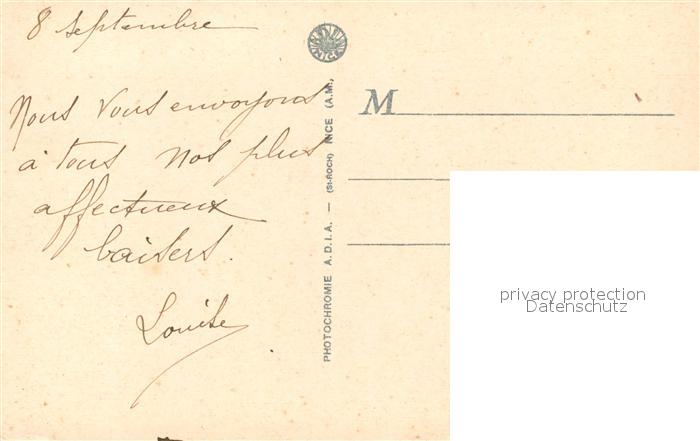 8 septembre
Nous vous envoyons
à tous nos plus
affectueux
baisers.
Louise
NICE
PHOTOCHROMIE A.D.I.A. — (St-ROCH) NICE (A.M.)
M
privacy protection
Datenschutz